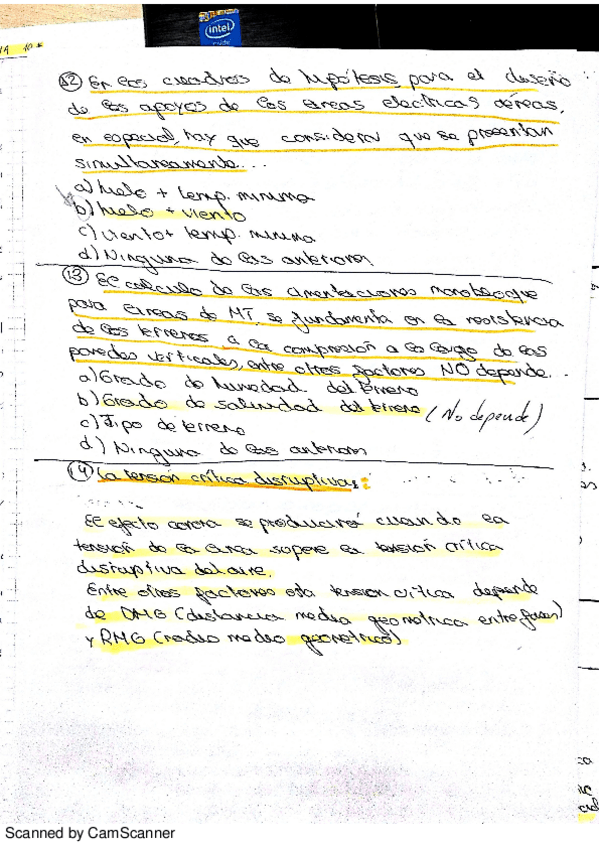 intel
inside
12 En los cuadros de hipótesis para el diseño
de los apoyos de las líneas electricas aéreas,
en especial, hay que considerar que se presentan
simultaneamente...
a) hielo + temp. minima
b) hielo + viento
c) viento + temp. minima
d) Ninguna de las anteriores
13 El calculo de las cimentaciones monobloque
para lineas de MT, se fundamenta en la resistencia
de los terrenos a la compresión a lo largo de las
paredes verticales, entre otros factores NO depende...
a) Grado de humedad del terreno
b) Grado de salinidad del terreno (No depende)
c) Tipo de terreno
d) Ninguna de las anteriores
14 La tensión crítica disruptiva:
El efecto corona se producirá cuando la
tensión de la linea supere la tensión crítica
disruptiva del aire.
Entre otros factores esta tension critica depende
de DMG (distancia media geometrica entre fases)
y RMG (radio medio geometrico)
Scanned by CamScanner